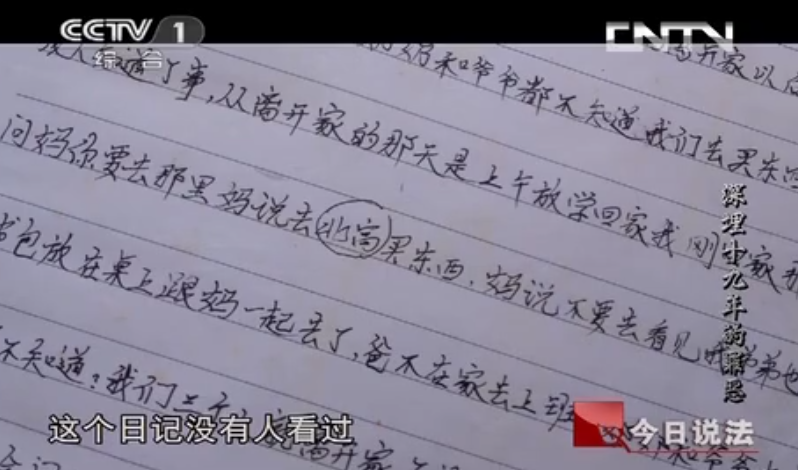 CCTV 1
综合
CNTN
奶和爷爷都不知道我们去买东西
了事,从离开家的那天是上午放学回家我刚
问妈你要去那里妈说去北高买东西.妈说不要去看见
包放在桌上跟妈一起去了,爸不在家去上班
不知道,我们
离开家
深埋十九年的罪恶
这个日记没有人看过
今日说法